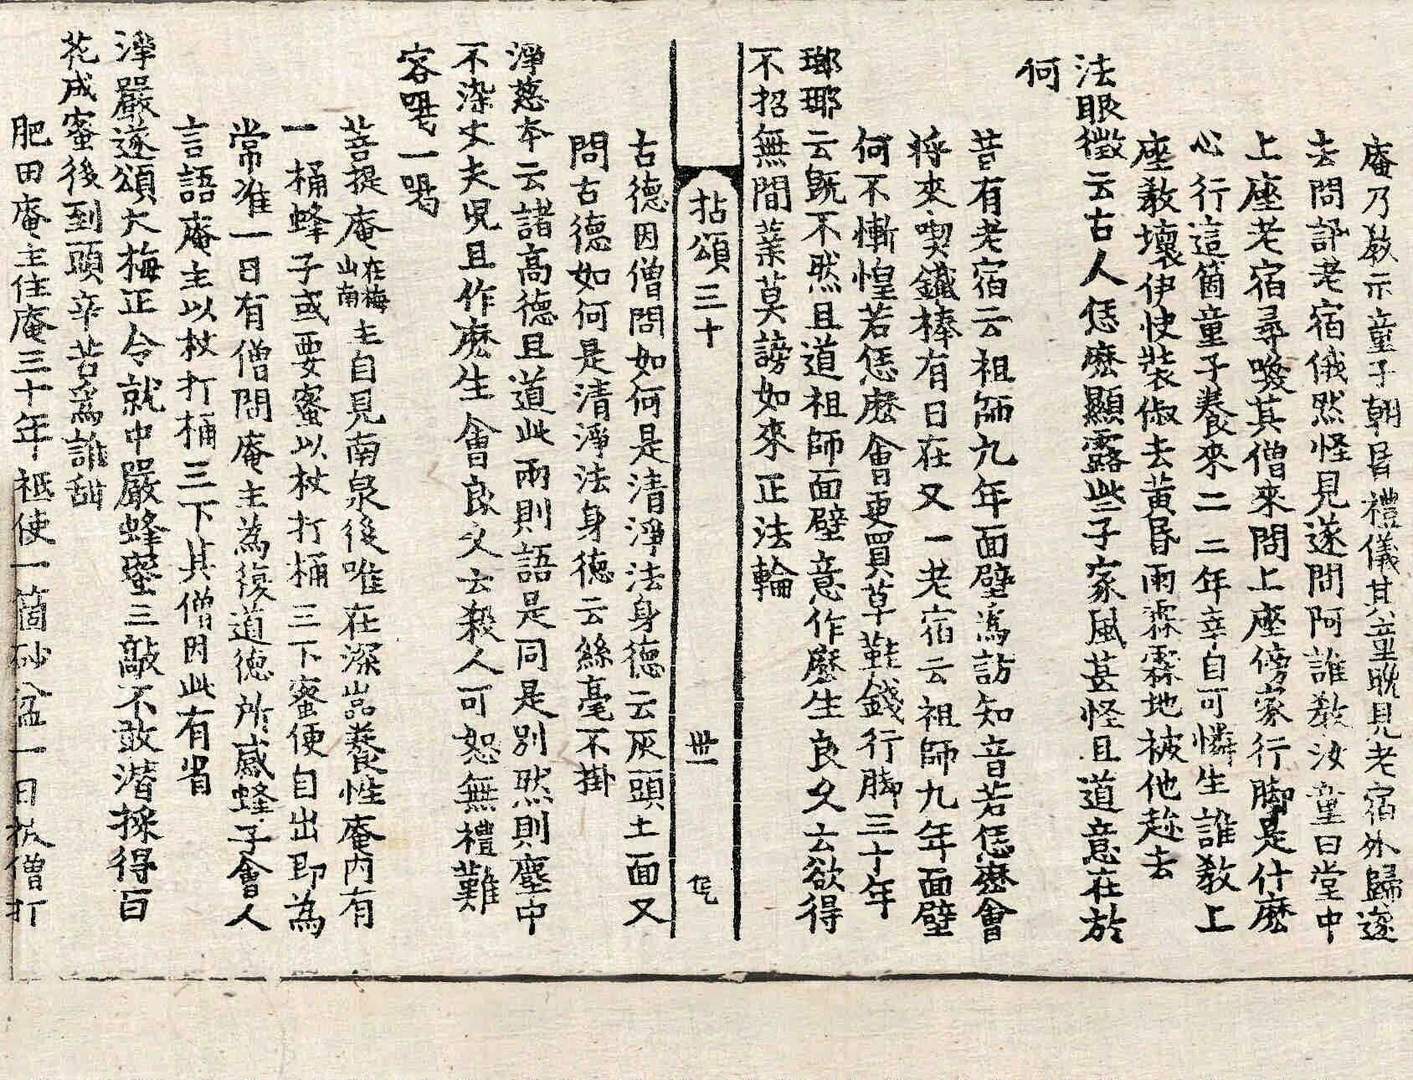 庵乃教示童子朝昏禮儀其童晚見老宿外歸遂
去問訊老宿俄然怪見遂問阿誰教汝童曰堂中
上座老宿尋喚其僧來問上座傍家行脚是什麽
心行這箇童子養來二二年幸自可憐生誰教上
座教壞伊快裝俶去黃昏雨霖霖地被他趂去
法眼徵云古人恁麽顯露些子家風甚怪且道意在於
何
昔有老宿云祖師九年面壁爲訪知音若恁麽會
將來喫鐵棒有日在又一老宿云祖師九年面壁
何不慚惶若恁麽會更買草鞋錢行脚三十年
瑯瑘云旣不然且道祖師面壁意作麽生良久云欲得
不招無間業莫謗如來正法輪
拈頌三十 卅一
古德因僧問如何是清淨法身德云灰頭土面又
問古德如何是清淨法身德云絲毫不掛
淨慈本云諸高德且道此兩則語是同是別然則塵中
不染丈夫児且作麽生會良久云殺人可恕無禮難
容喝一喝
菩提庵在梅山南主自見南泉後唯在深嵓養性庵內有
一桶蜂子或要蜜以杖打桶三下蜜便自出即為
常准一日有僧問庵主為復道德所感蜂子會人
言語庵主以杖打桶三下其僧因此有省
淨嚴遂頌大梅正令就中嚴蜂蜜三敲不敢潛採得百
花成蜜後到頭辛苦爲誰甜
肥田庵主住庵三十年祗使一箇砂盆一日被僧打